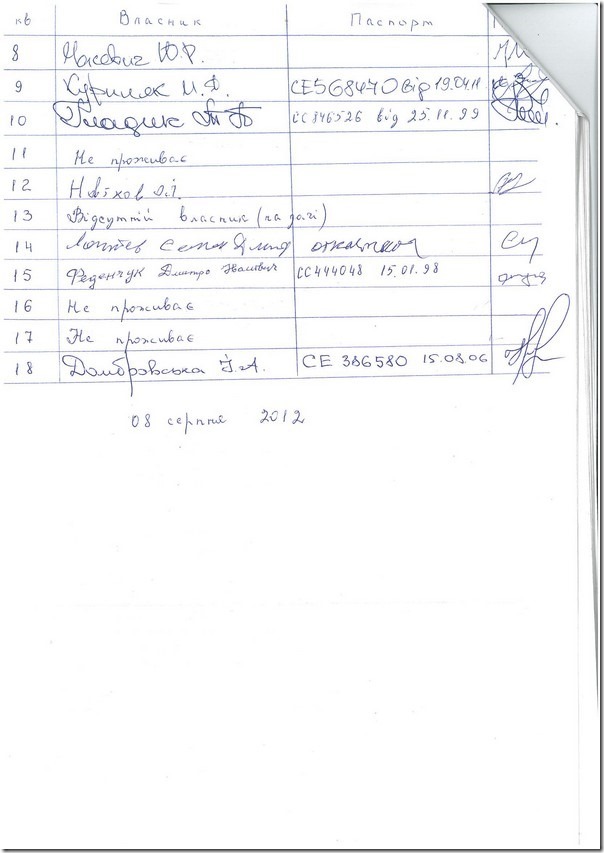 кв Власник Паспорт
8 Ю.Р.
9 Куриляк М.Д. СЕ568470 від 19.04.11
10 Гладик СС846526 від 25.11.99
11 Не проживає
12
13 Відсутній власник (на дачі)
14
15 Феденчук Дмитро СС444048 15.01.98
16 Не проживає
17 Не проживає
18 Домбровська І.А. СЕ 386580 15.08.06
08 серпня 2012